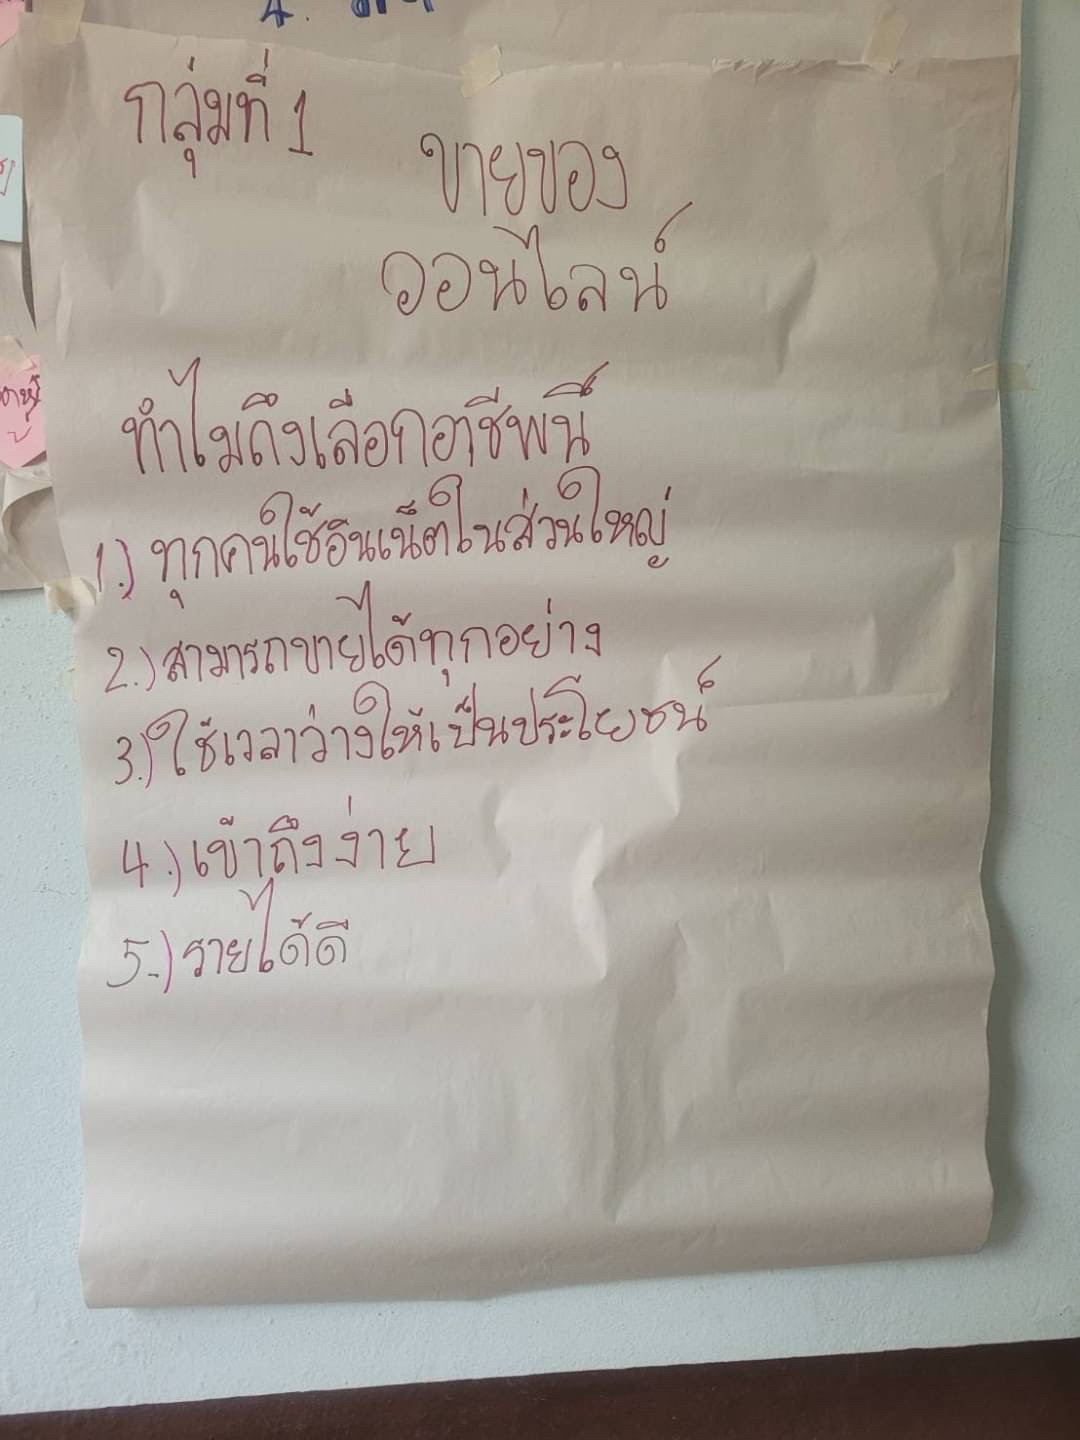 กลุ่มที่ 1
ขายของ
ออนไลน์
ทำไมถึงเลือกอาชีพนี้
1.) ทุกคนใช้อินเน็ตในส่วนใหญ่
2.) สามารถขายได้ทุกอย่าง
3.) ใช้เวลาว่างให้เป็นประโยชน์
4.) เข้าถึงง่าย
5.) รายได้ดี